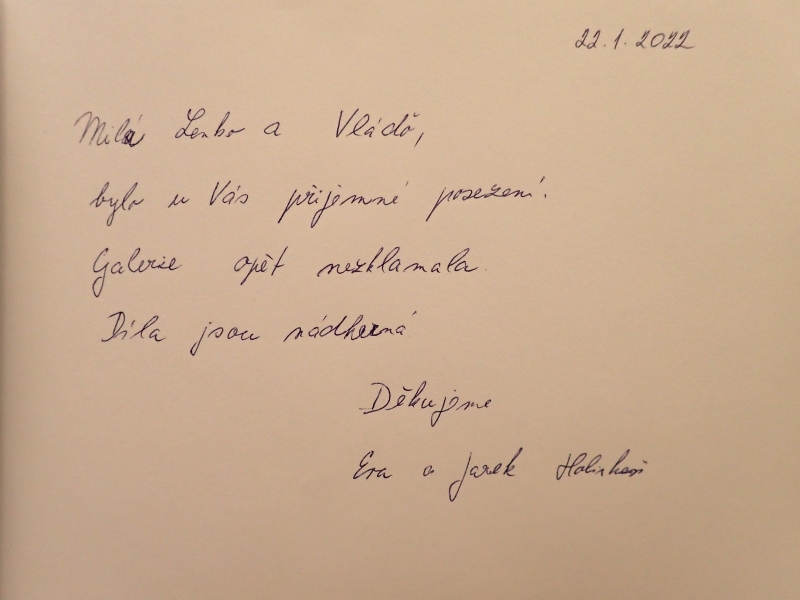 22.1.2022
Milá Lenko a Vládo,
bylo u Vás příjemné posezení.
Galerie opět nezklamala.
Díla jsou nádherná
Děkujeme
Eva a Jarek